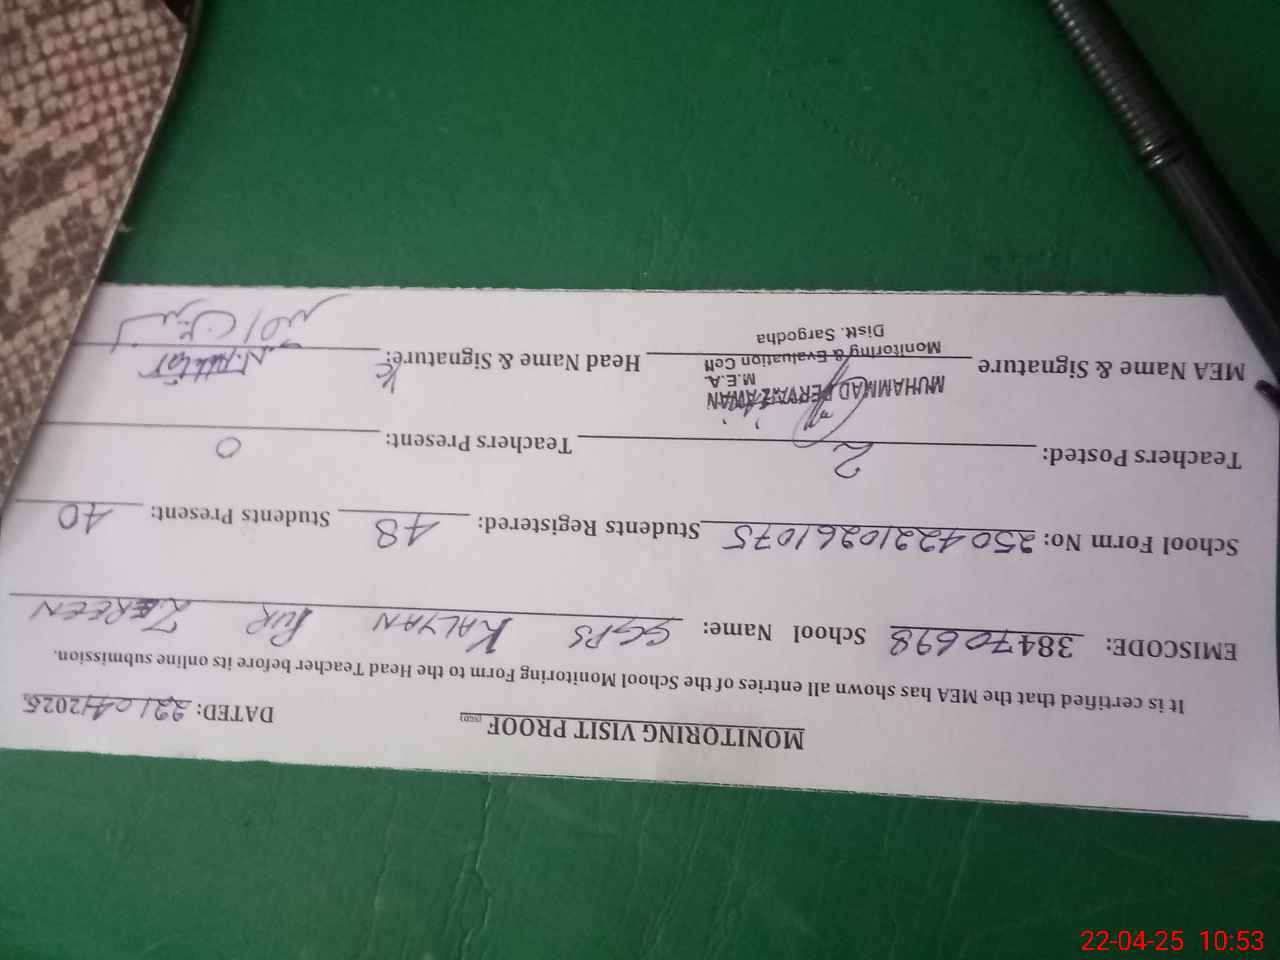 MONITORING VISIT PROOF
DATED: 22/04/2025
It is certified that the MEA has shown all entries of the School Monitoring Form to the Head Teacher before its online submission.
EMISCODE: 38470698 School Name: GGPS KALYAN PUR ZEREEN
School Form No: 25042210261075 Students Registered: 48 Students Present: 40
Teachers Posted: 2 Teachers Present: 0
MEA Name & Signature Head Name & Signature:
MUHAMMAD PERVAIZ AWAN
M.E.A.
Monitoring & Evaluation Cell
Distt. Sargodha
22-04-25 10:53